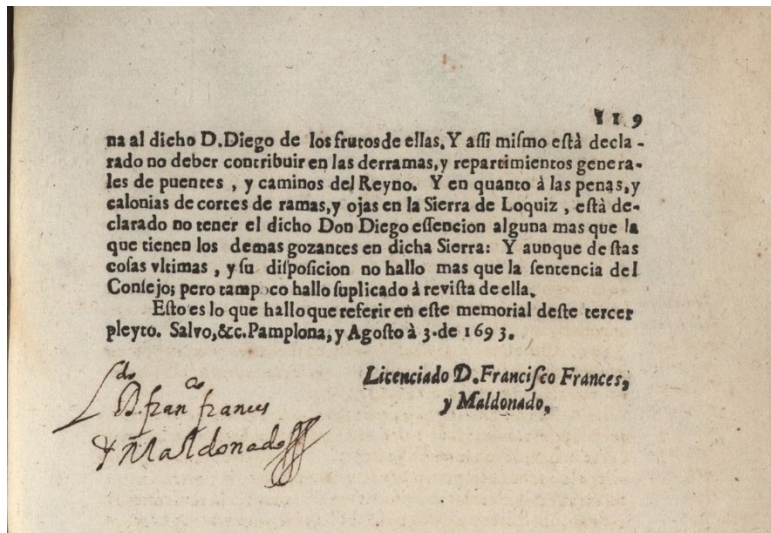 119
na al dicho D.Diego de los frutos de ellas. Y aſſi miſmo eſtà decla-
rado no deber contribuir en las derramas,y repartimientos genera-
les de puentes , y caminos del Reyno. Y en quanto à las penas,y
calonias de cortes de ramas,y ojas en la Sierra de Loquiz , eſtà de-
clarado no tener el dicho Don Diego eſſencion alguna mas que la
que tienen los demas gozantes en dicha Sierra: Y aunque deſtas
coſas vltimas , y ſu diſpoſicion no hallo mas que la ſentencia del
Conſejo; pero tampoco hallo ſuplicado à reviſta de ella.
Eſto es lo que hallo que referir en eſte memorial deſte tercer
pleyto. Salvo,&c.Pamplona,y Agoſto à 3.de 1693.
Licenciado D.Franciſco Frances,
y Maldonado,
Ldo D.franco frances
y Maldonado